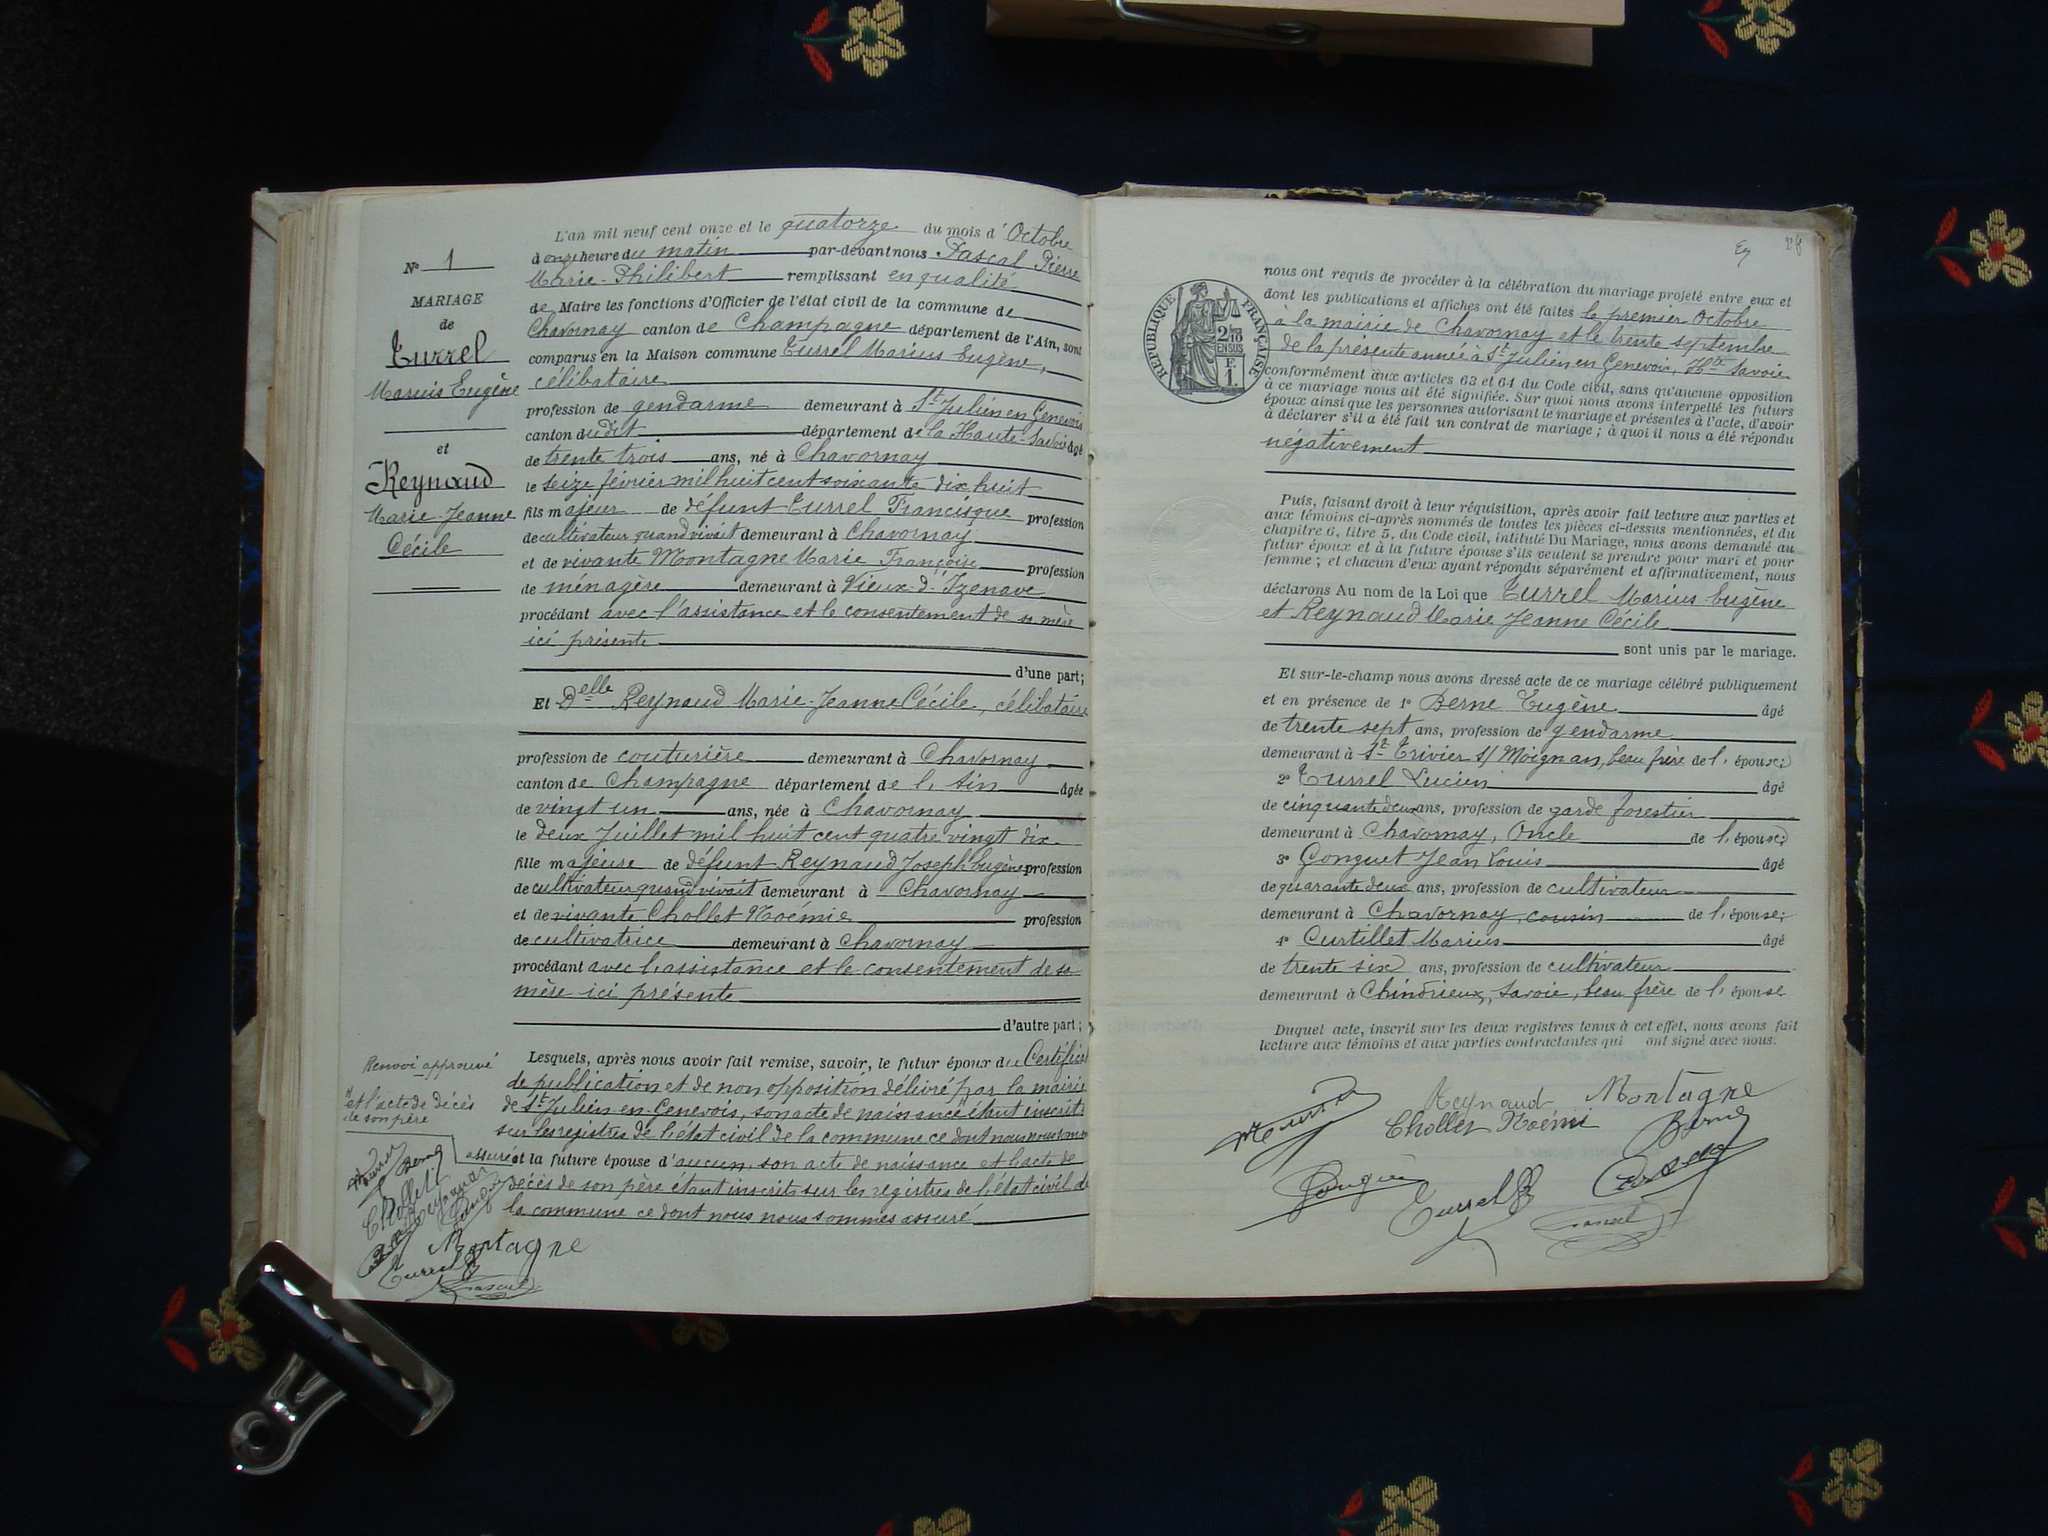 Nº 1
MARIAGE
de
Turrel
Maruis Eugène
et
Reynaud
Marie-Jeanne
Cécile
L'an mil neuf cent onze et le quatorze du mois d'Octobre
à onze heure du matin par-devant nous Pascal Pierre
Marie-Philibert remplissant en qualité
de Maire les fonctions d'Officier de l'état civil de la commune de
Chavornay canton de Champagne département de l'Ain, sont
comparus en la Maison commune Turrel Marius Eugène,
célibataire
profession de gendarme demeurant à St Julien en Genevois
canton dudit département de la Haute-Savoie âgé
de trente trois ans, né à Chavornay
le seize février mil huit cent soixante dix huit
fils majeur de défunt Turrel Francisque profession
de cultivateur quand vivait demeurant à Chavornay
et de vivante Montagne Marie Françoise profession
de ménagère demeurant à Vieux-d'Izenave
procédant avec l'assistance et le consentement de sa mère
ici présente
d'une part;
Et Delle Reynaud Marie-Jeanne Cécile, célibataire
profession de couturière demeurant à Chavornay
canton de Champagne département de l'Ain âgée
de vingt un ans, née à Chavornay
le deux Juillet mil huit cent quatre vingt dix
fille majeure de défunt Reynaud Joseph Eugène profession
de cultivateur quand vivait demeurant à Chavornay
et de vivante Chollet Noémie profession
de cultivatrice demeurant à Chavornay
procédant avec l'assistance et le consentement de sa
mère ici présente
d'autre part;
Lesquels, après nous avoir fait remise, savoir, le futur époux du Certificat
de publication et de non opposition délivré par la mairie
de St Julien en Genevois, son acte de naissance étant inscrit
sur les registres de l'état civil de la commune ce dont nous nous sommes
assuré et la future épouse d'aucun, son acte de naissance et l'acte de
décès de son père étant inscrits sur les registres de l'état civil de
la commune ce dont nous nous sommes assuré
Renvoi approuvé
et l'acte de décès
de son père
Turrel Berne
Chollet
Reynaud
Montagne
Turrel
Pascal
28
RÉPUBLIQUE FRANÇAISE
2/10
EN SUS
F.
1.
nous ont requis de procéder à la célébration du mariage projeté entre eux et
dont les publications et affiches ont été faites le premier Octobre
à la mairie de Chavornay et le trente septembre
de la présente année à St Julien en Genevois, Hte Savoie
conformément aux articles 63 et 64 du Code civil, sans qu'aucune opposition
à ce mariage nous ait été signifiée. Sur quoi nous avons interpellé les futurs
époux ainsi que les personnes autorisant le mariage et présentes à l'acte, d'avoir
à déclarer s'il a été fait un contrat de mariage; à quoi il nous a été répondu
négativement
Puis, faisant droit à leur réquisition, après avoir fait lecture aux parties et
aux témoins ci-après nommés de toutes les pièces ci-dessus mentionnées, et du
chapitre 6, titre 5, du Code civil, intitulé Du Mariage, nous avons demandé au
futur époux et à la future épouse s'ils veulent se prendre pour mari et pour
femme; et chacun d'eux ayant répondu séparément et affirmativement, nous
déclarons Au nom de la Loi que Turrel Marius Eugène
et Reynaud Marie Jeanne Cécile
sont unis par le mariage.
Et sur-le-champ nous avons dressé acte de ce mariage célébré publiquement
et en présence de 1º Berne Eugène âgé
de trente sept ans, profession de gendarme
demeurant à St Trivier s/ Moignans, beau frère de l'épouse;
2º Turrel Lucien âgé
de cinquante deux ans, profession de garde forestier
demeurant à Chavornay, Oncle de l'épouse;
3º Gonguet Jean Louis âgé
de quarante deux ans, profession de cultivateur
demeurant à Chavornay, cousin de l'épouse;
4º Curtillet Marius âgé
de trente six ans, profession de cultivateur
demeurant à Chindrieux, Savoie, beau frère de l'épouse
Duquel acte, inscrit sur les deux registres tenus à cet effet, nous avons fait
lecture aux témoins et aux parties contractantes qui ont signé avec nous.
Reynaud Montagne
Chollet Noémi Berne
Turrel
Pascal